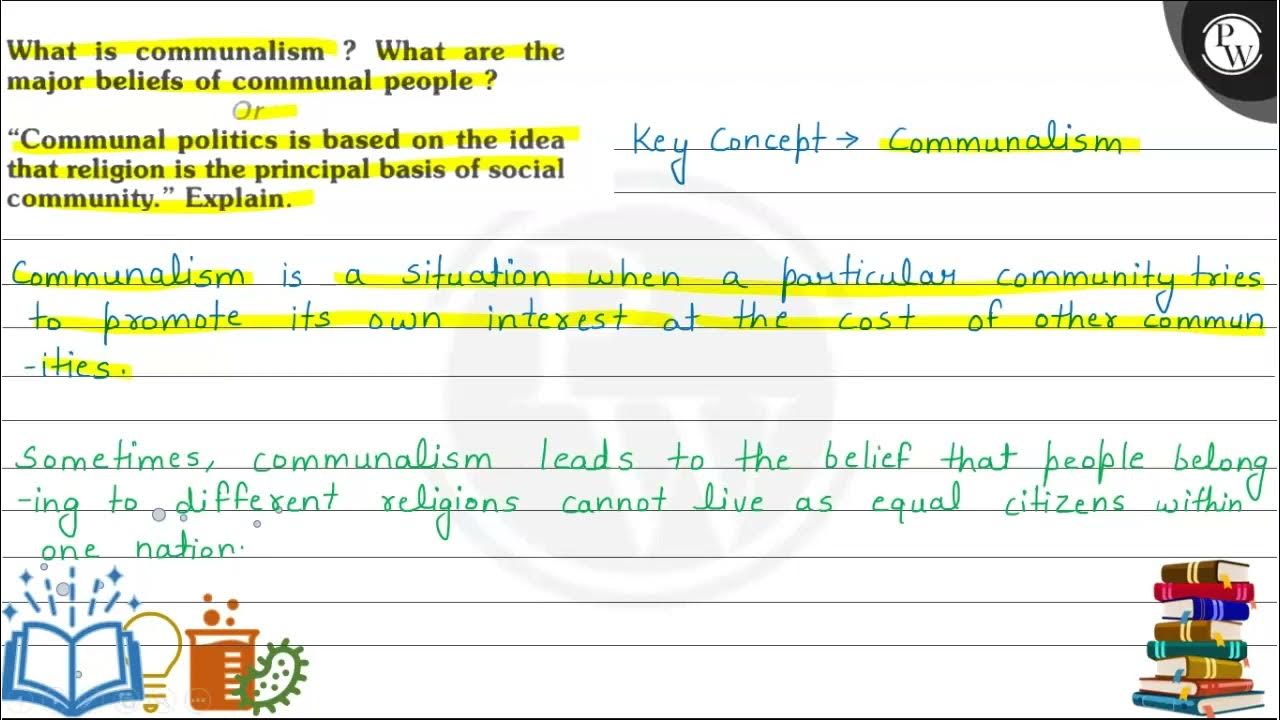 What is communalism ? What are the
major beliefs of communal people ?
Or
“Communal politics is based on the idea
that religion is the principal basis of social
community.” Explain.
Key Concept → Communalism
Communalism is a situation when a particular community tries
to promote its own interest at the cost of other commun
-ities.
Sometimes, communalism leads to the belief that people belong
-ing to different religions cannot live as equal citizens within
one nation.
PW
PW